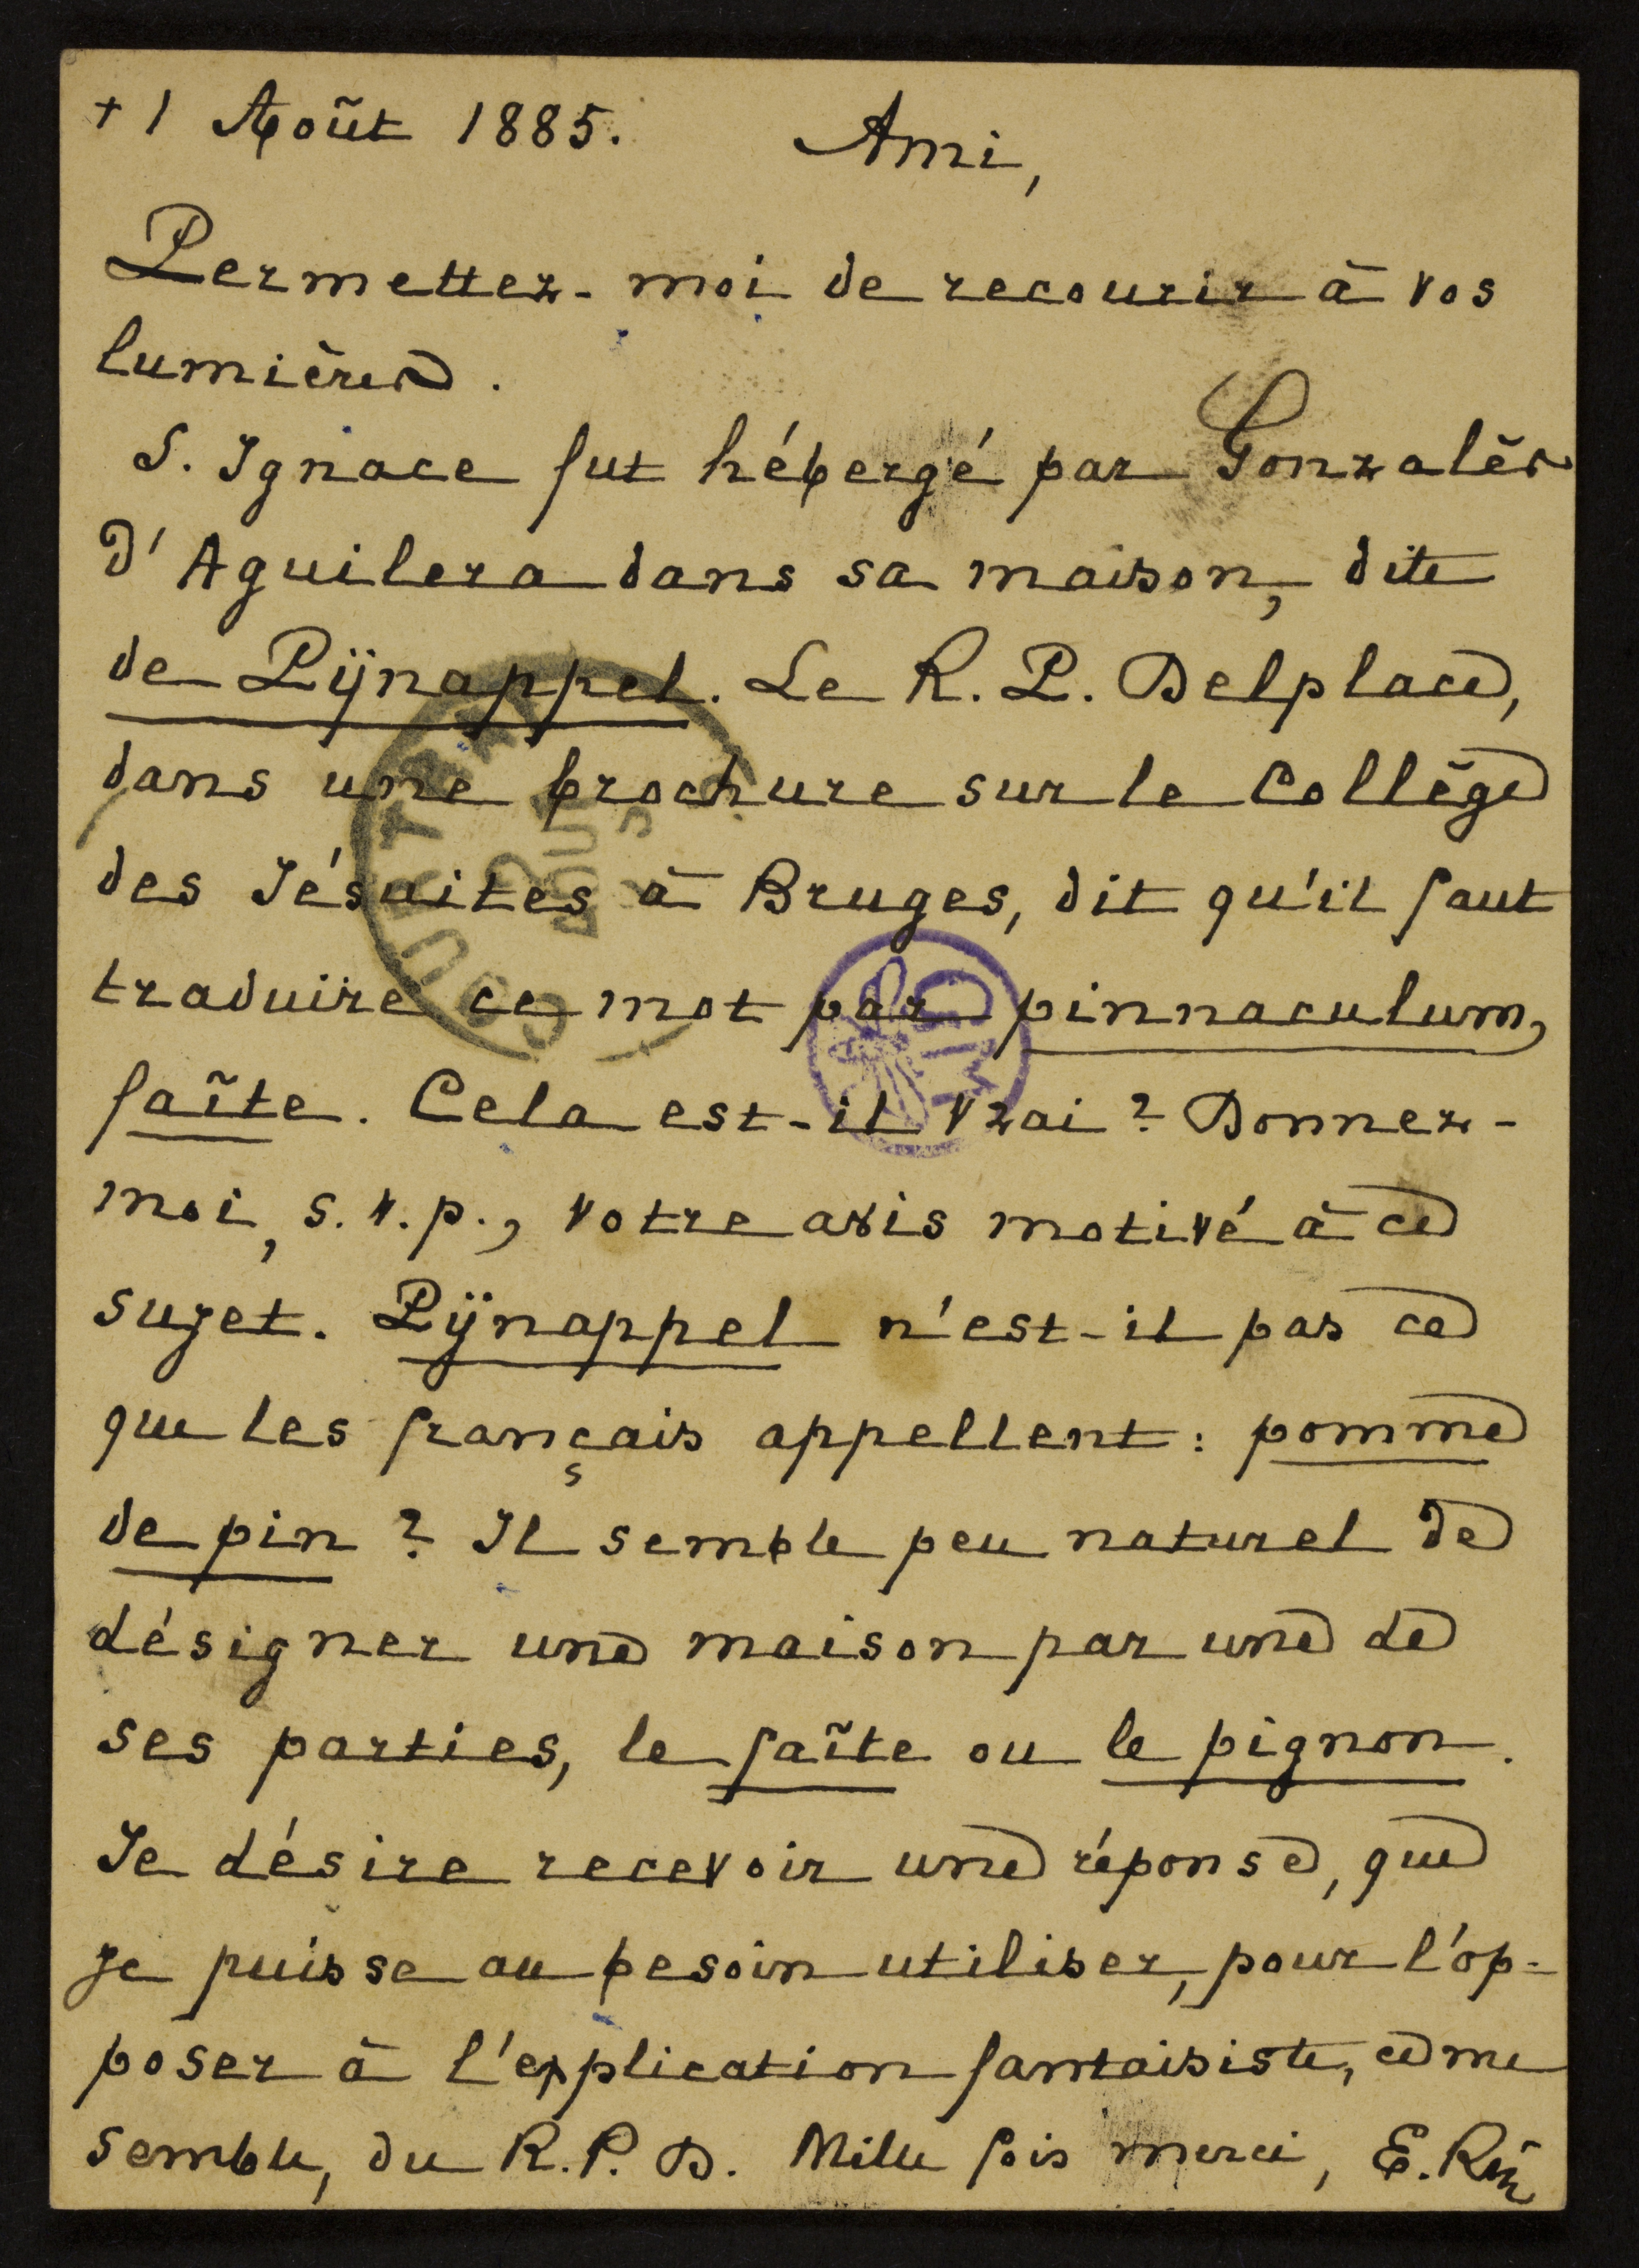 + 1 Août 1885. Ami,
Permettez-moi de recourir à vos
lumières.
S. Ignace fut hébergé par Gonzalès
d'Aguilera dans sa maison, dite
de Pijnappel. Le R. P. Delplace,
dans une brochure sur le Collège
des Jésuites à Bruges, dit qu'il faut
traduire ce mot par pinnaculum,
faîte. Cela est-il vrai? Donnez-
moi, s.v.p., votre avis motivé à ce
sujet. Pijnappel n'est-il pas ce
que les français appellent: pomme
de pin? Il semble peu naturel de
désigner une maison par une de
ses parties, le faîte ou le pignon.
Je désire recevoir une réponse, que
je puisse au besoin utiliser, pour l'op-
poser à l'explication fantaisiste, ce me
semble, du R. P. D. Mille fois merci, E.
COURTRAI
AOUT